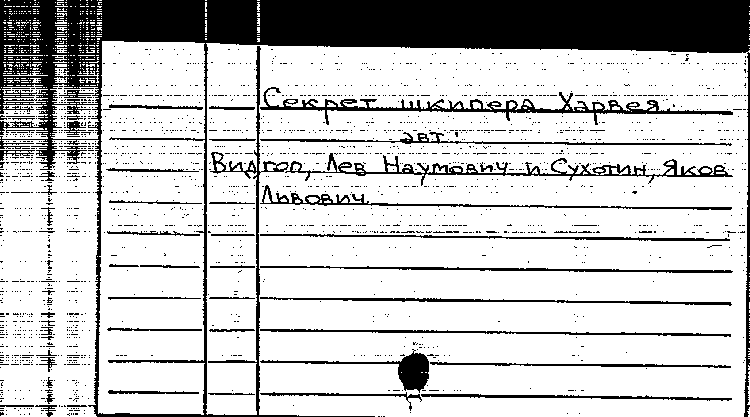 Секрет шкипера Харвея.
авт:
Видгоп, Лев Наумович и Сухотин, Яков
Львович.